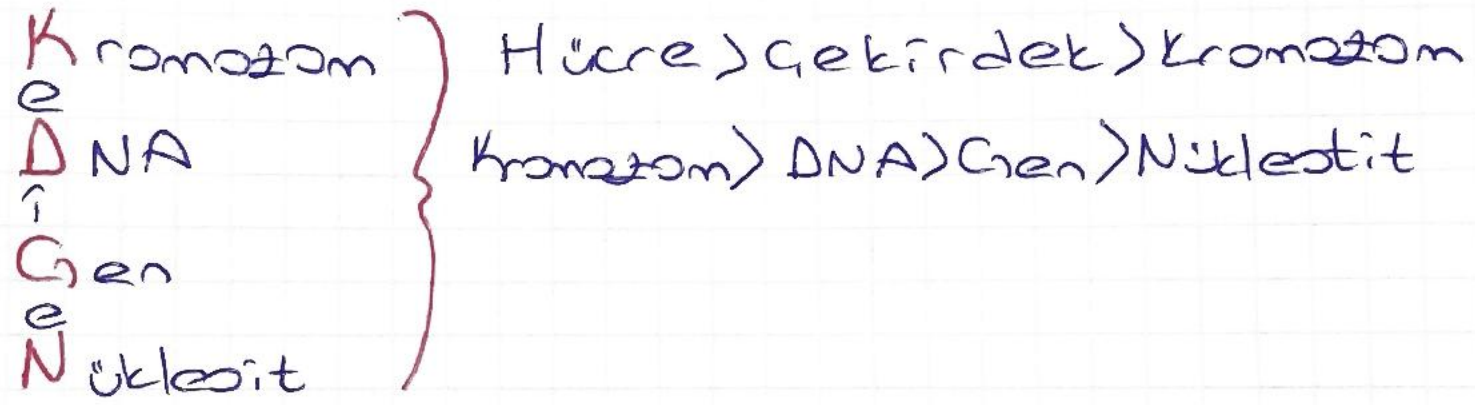 Kromozom
e
DNA
i
Gen
e
Nükleoit
Hücre > Çekirdek > Kromozom
Kromozom > DNA > Gen > Nükleotit